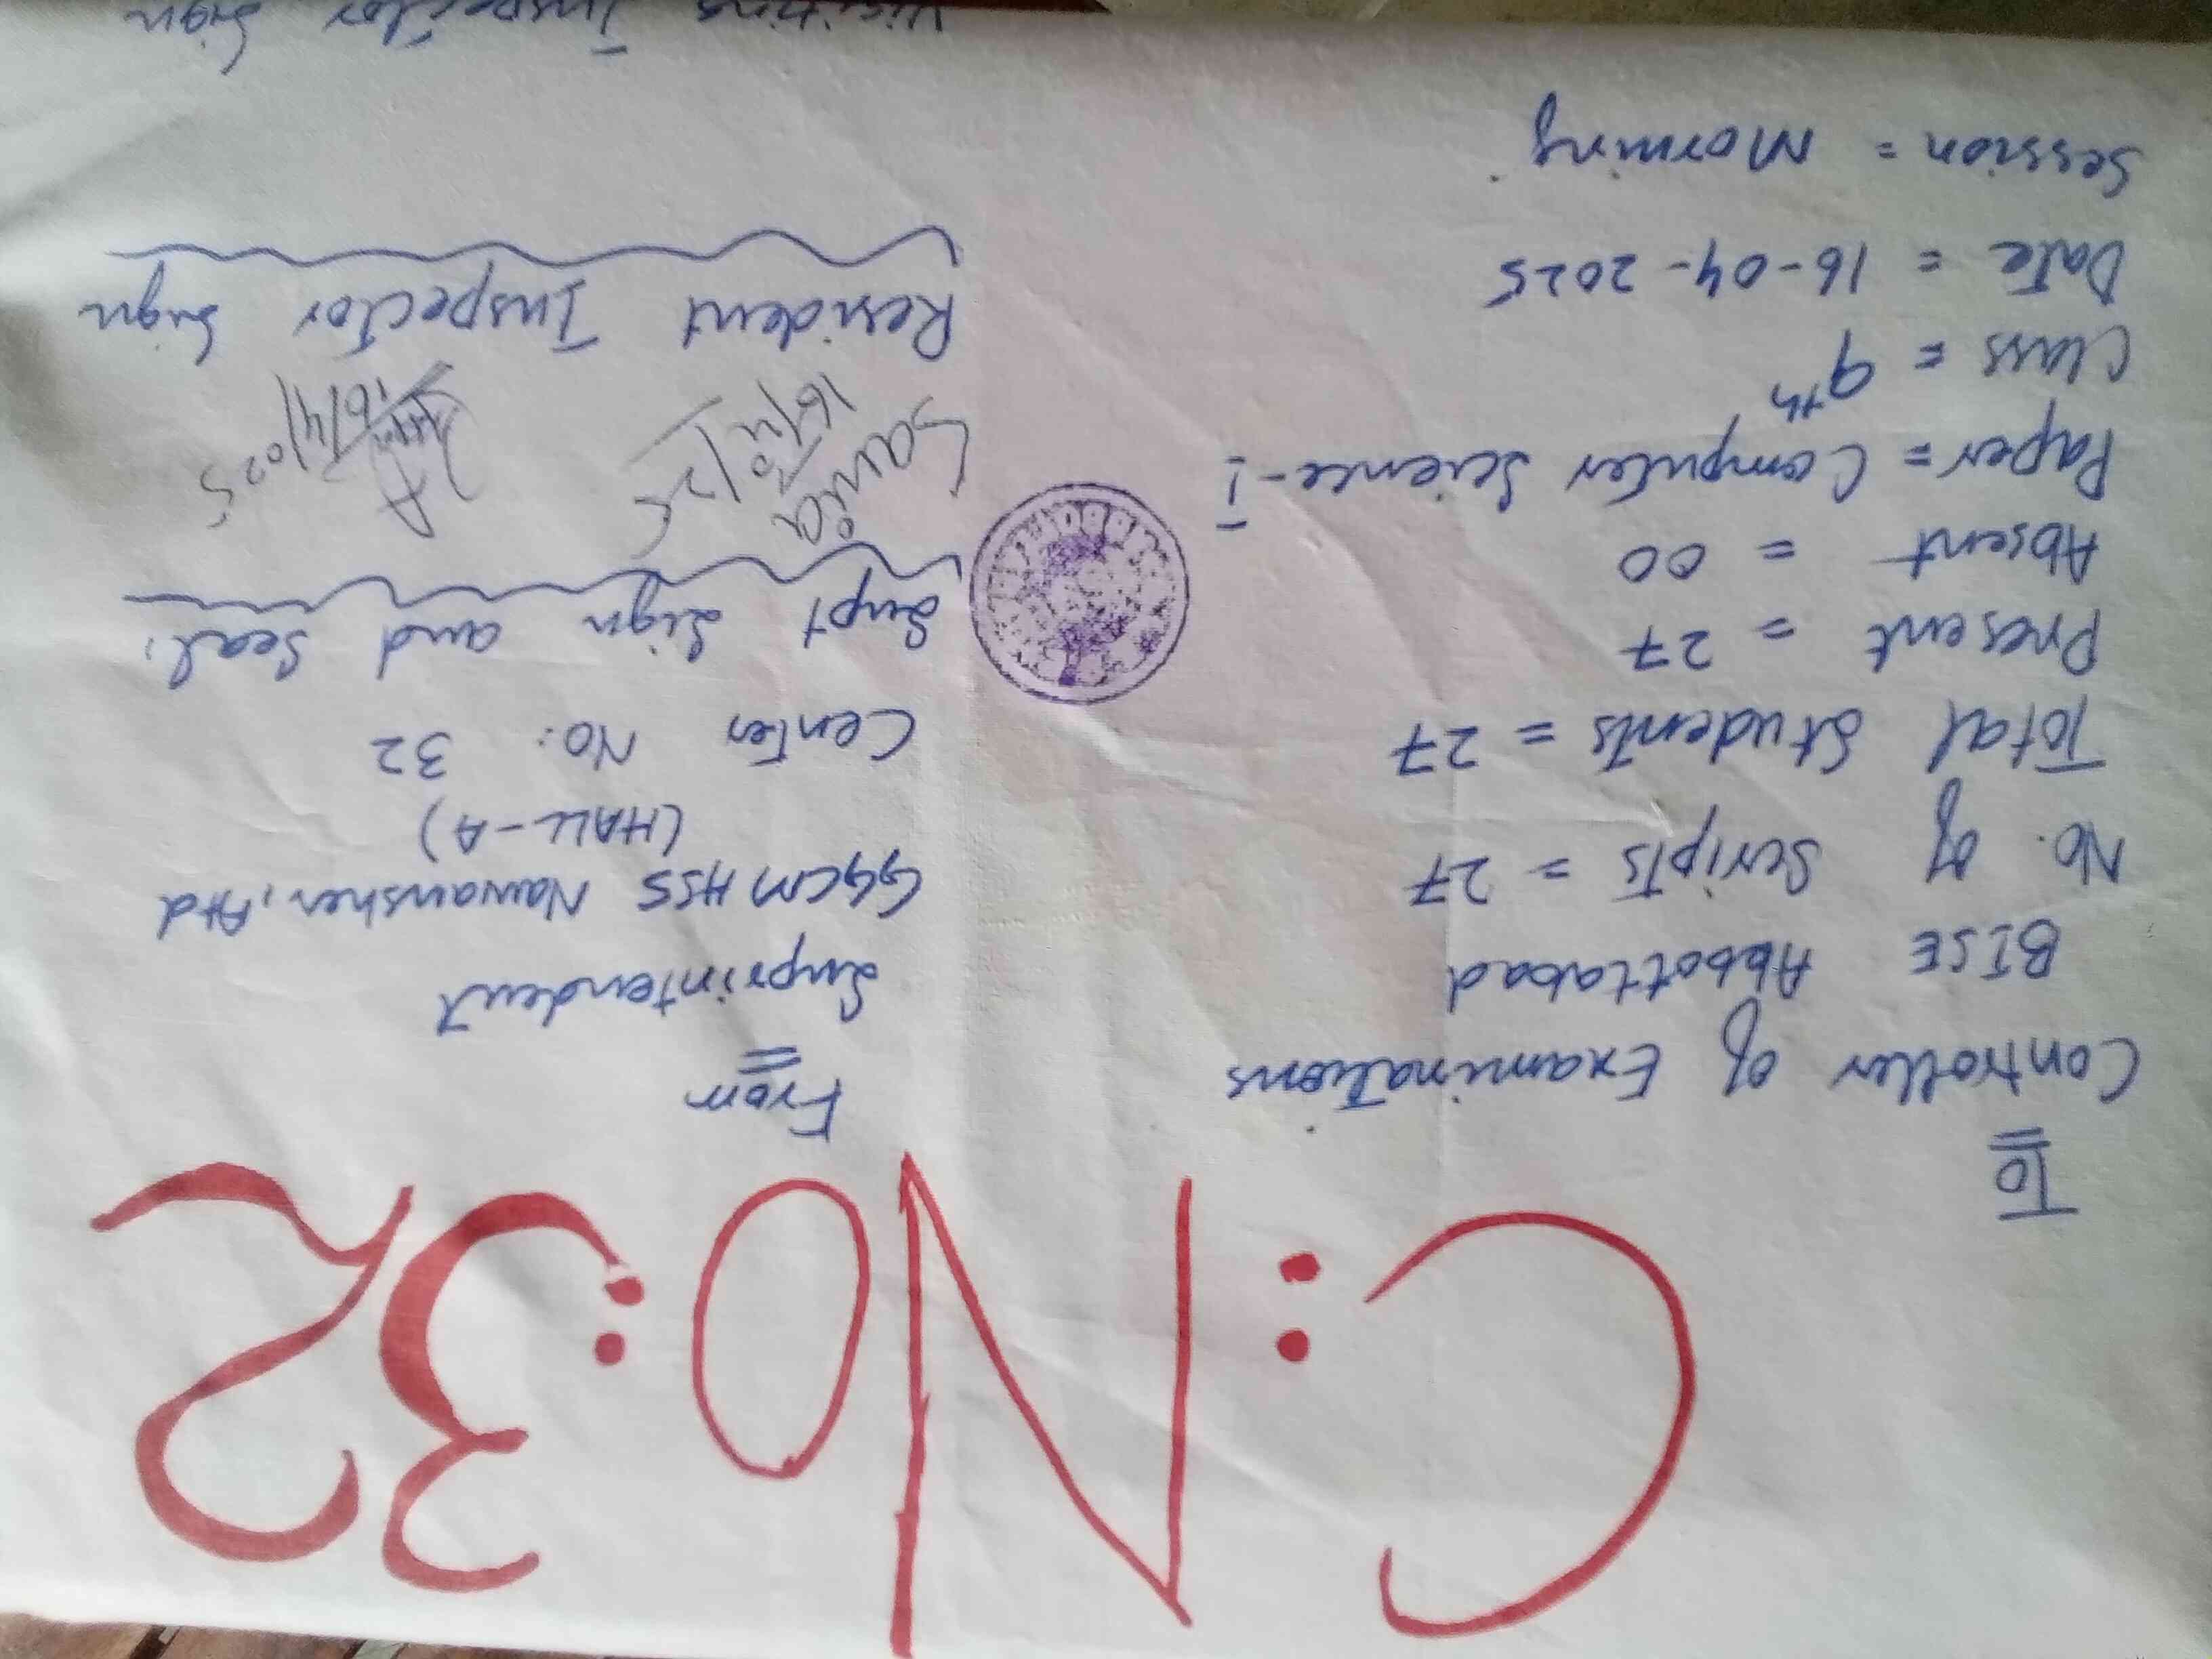 C: No: 32
To
Controller of Examinations
BISE Abbottabad
No. of Scripts = 27
Total Students = 27
Present = 27
Absent = 00
Paper = Computer Science-I
Class = 9th
Date = 16-04-2025
Session = Morning
From
Suprintendent
GGCMHSS Nawansher, Atd
(HALL-A)
Center No: 32
Supt Sign and Seal.
Sania
Resident Inspector Sign
Visiting Inspector Sign